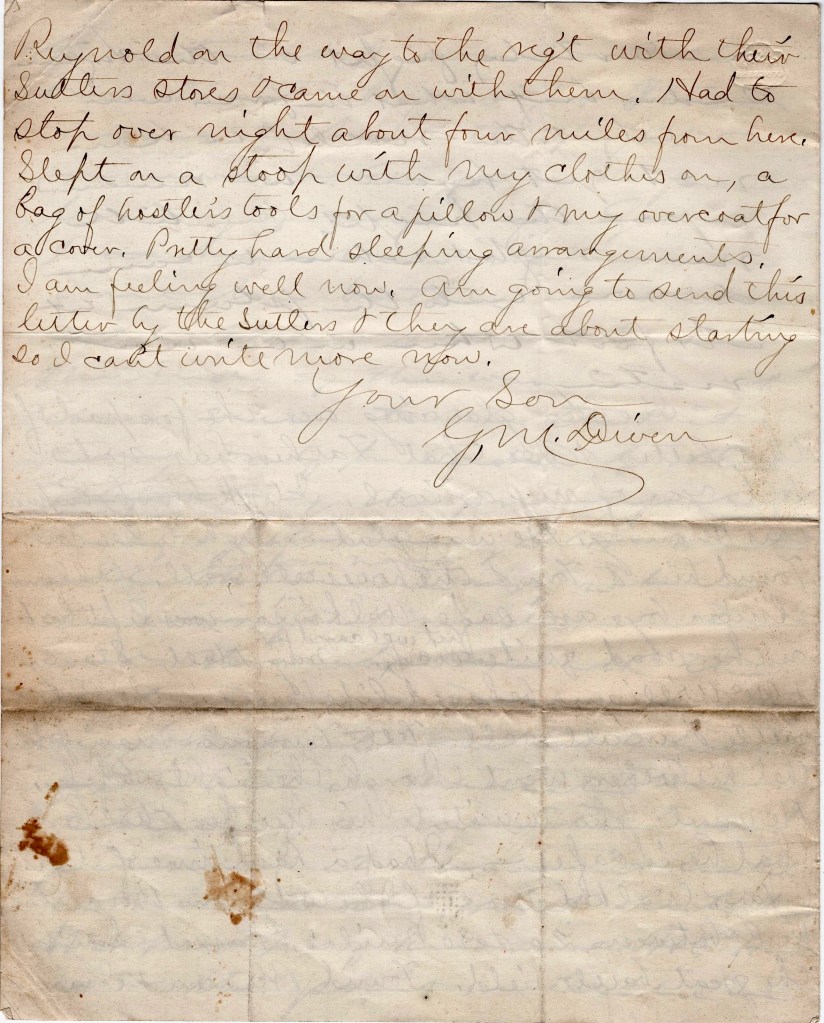 Reynold on the way to the reg't with their
Sutlers stores & came on with them. Had to
stop over night about four miles from here.
Slept on a stoop with my clothes on, a
bag of hostler's tools for a pillow & my overcoat for
a cover. Pretty hard sleeping arrangements.
I am feeling well now. Am going to send this
letter by the Sutlers & they are about starting
so I can't write more now.
Your Son
G. M. Diven